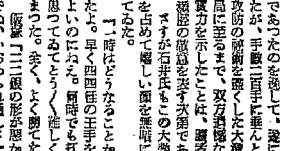 であつたのを逸して、遂に
たが、手数二百手に垂んと
攻防の秘術を盡くした大激
局に至るまで、双方遺憾な
實力を示したことは、
深の敬意を表す次第であ
さすが石井氏もこの大
を占めて嬉しい顔を無暗に
てゐた。
『一時はどうなることか
たよ。早く四四桂の王手を
よいのにねえ。何時でも打
思つてゐてとう〳〵難しく
まつた。全く、よく勝てた